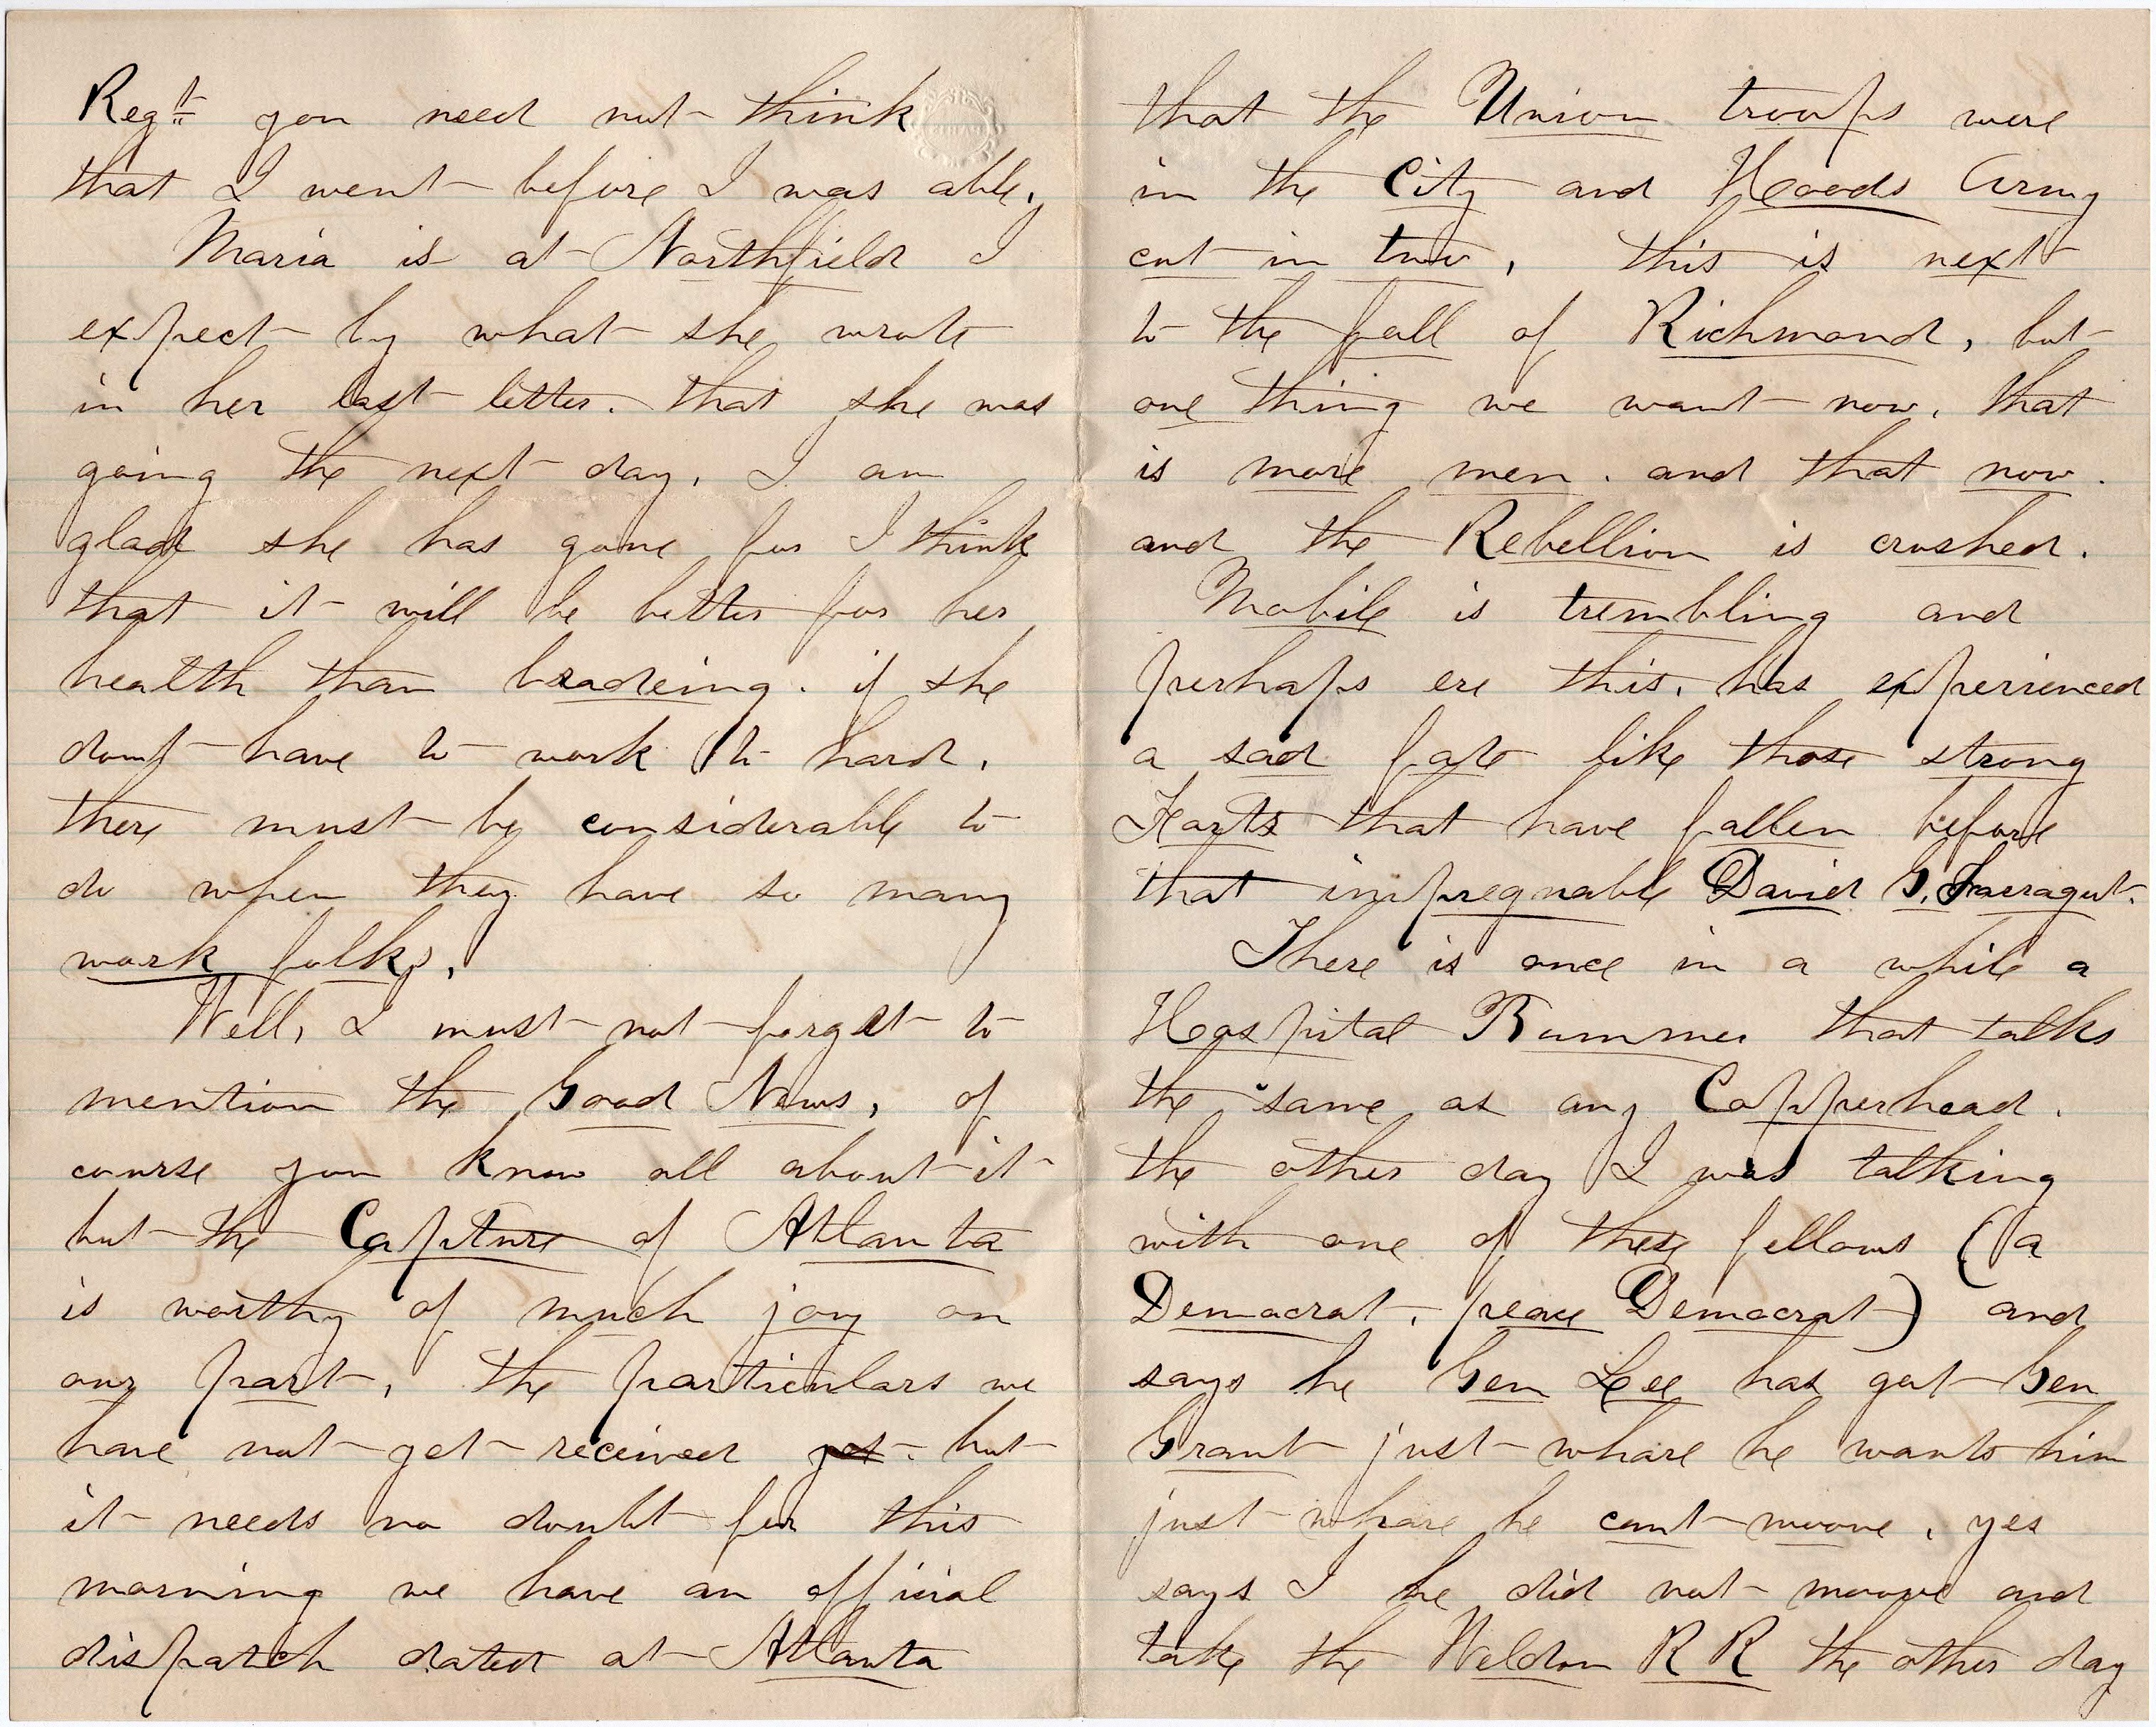 Regt you need not think
that I went before I was able,
Maria is at Northfield I
expect by what she wrote
in her last letter. that she was
going the next day, I am
glad she has gone for I think
that it will be better for her
health than braideing. if she
dont have to work to hard,
there must be considerable to
do when they have so many
work folks,
Well, I must not forget to
mention the Good News, of
course you know all about it
but the Capture of Atlanta
is worthy of much joy on
our part, the particulars we
have not yet received yet. but
it needs no doubt for this
morning we have an official
dispatch dated at Atlanta
that the Union troops were
in the City and Hoods Army
cut in two, this is next
to the fall of Richmond, but
one thing we want now, that
is more men. and that now.
and the Rebellion is crushed.
Mobile is trembling and
perhaps ere this, has experienced
a sad fate like those strong
Forts that have fallen before
that impregnable David G. Farragut.
There is once in a while a
Hospital Bummer that talks
the same as any Copperhead.
the other day I was talking
with one of these fellows (a
Democrat, peace Democrat) and
says he Gen Lee has got Gen
Grant just whare he wants him
just whare he cant moove, yes
says I he did not moove and
take the Weldon R R the other day